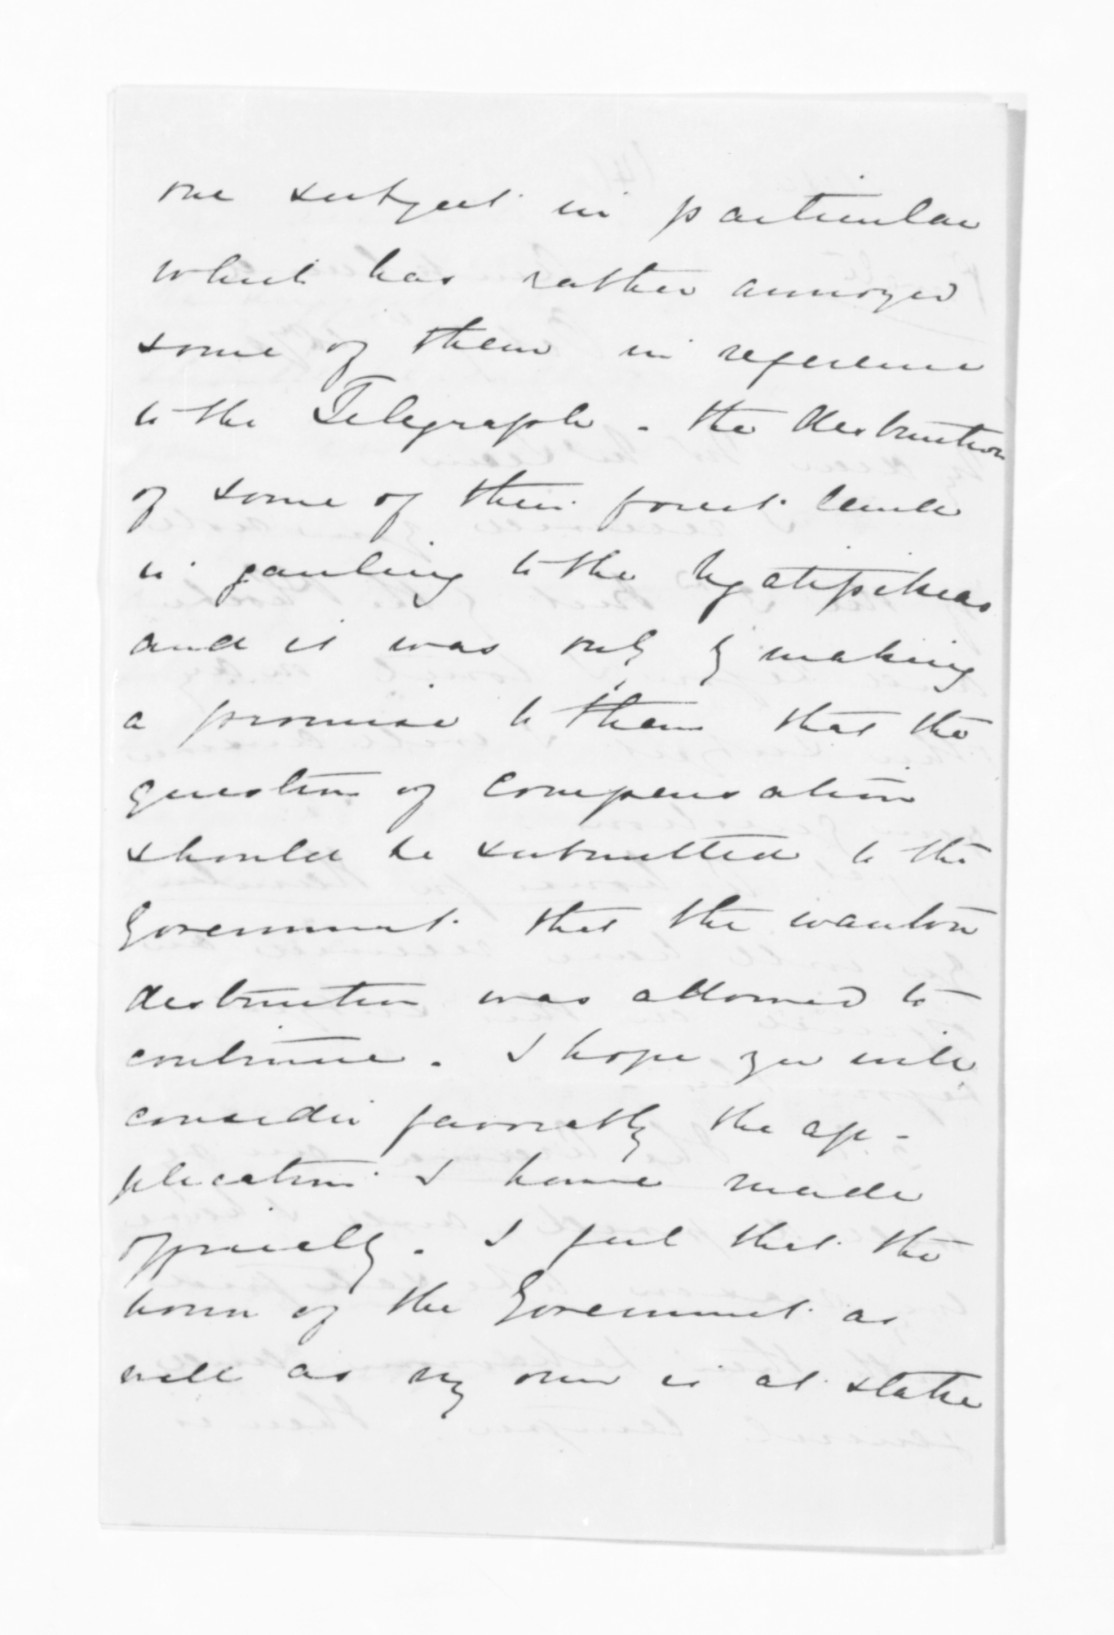 one subject in particular
which has rather annoyed
some of them in reference
to the Telegraph - the destruction
of some of their forest land
belonging to the Ngatipikiao
and it was only by making
a promise to them that the
question of compensation
should be submitted to the
Government that the wanton
destruction was allowed to
continue. I hope you will
consider favorably the ap-
plication I have made
officially. I feel that the
honor of the Government as
well as my own is at stake